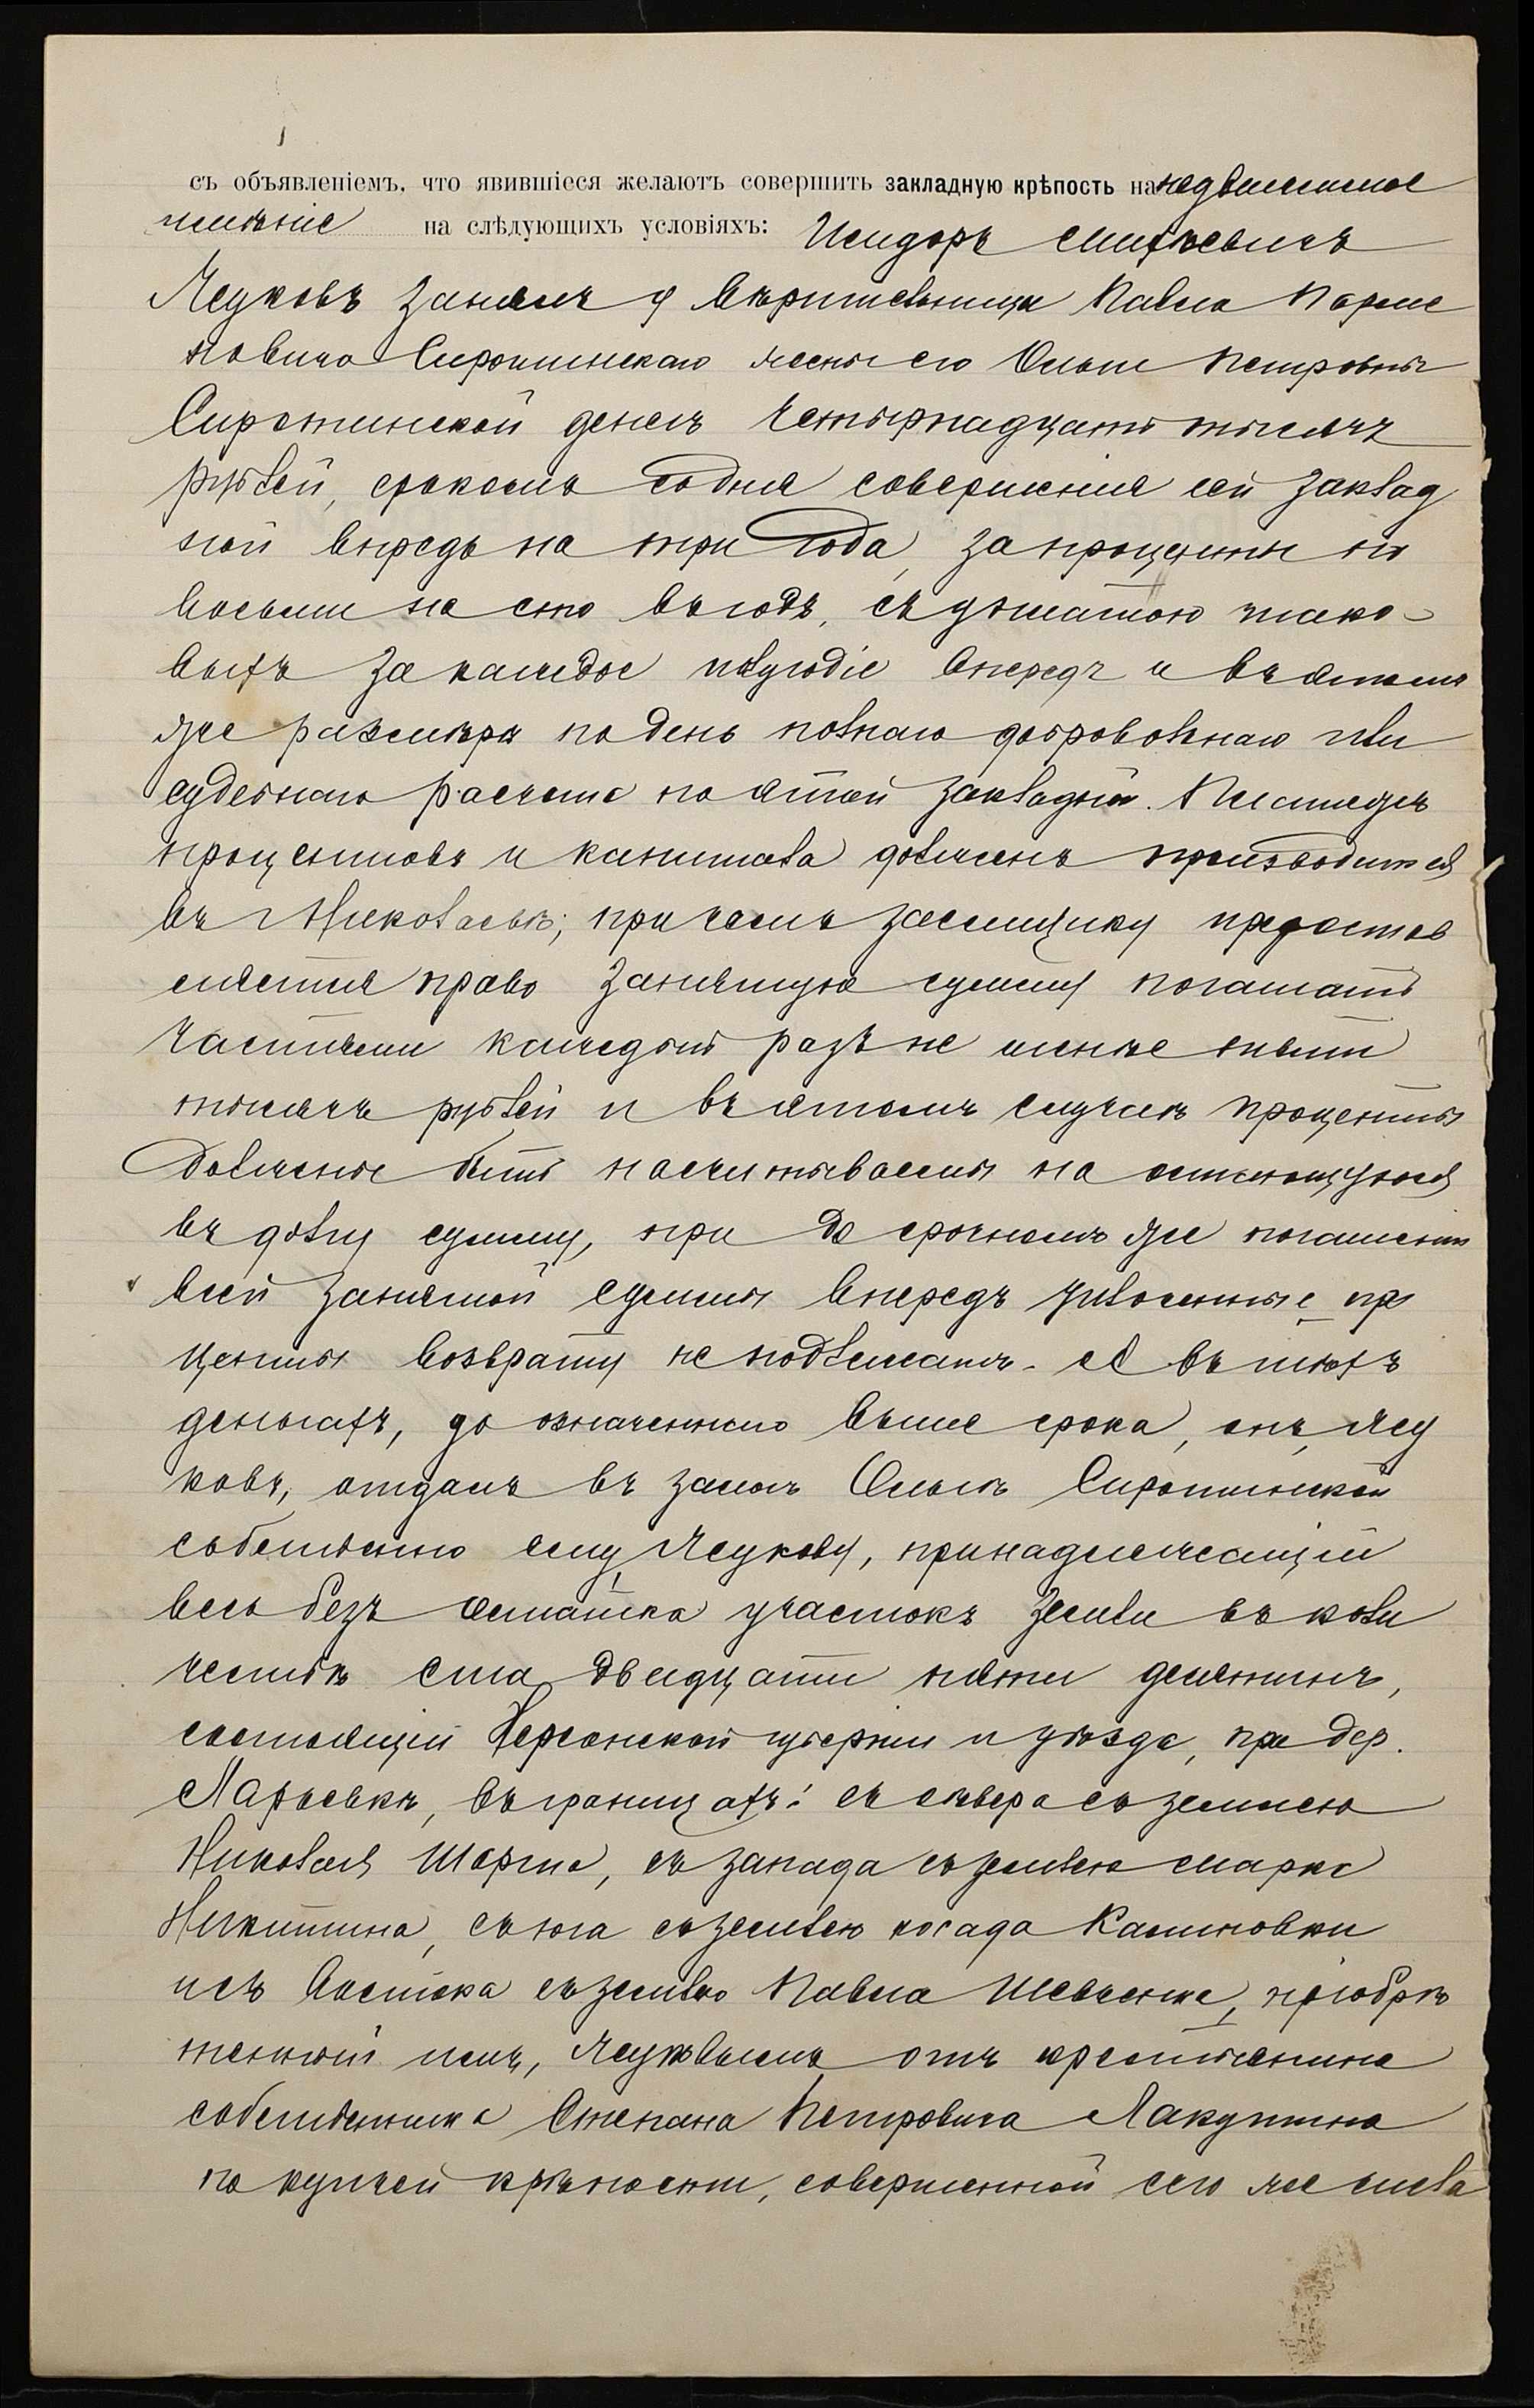 съ объявленіемъ, что явившіеся желаютъ совершить закладную крѣпость на недвижимое
имѣніе на слѣдующихъ условіяхъ: Исидоръ
Жуковъ занялъ у вѣрительницы Павла Парме
новича Сиротинскаго жены его Ольги Петровны
Сиротинской денегъ четырнадцать тысячъ
рублей, срокомъ со дня совершенія сей заклад
ной впредь на три года, за проценты по
восьми на сто въ годъ, съ уплатою тако-
выхъ за каждое полугодіе впередъ и въ этомъ
же размѣрѣ по день полнаго добровольнаго или
судебнаго расчета по этой закладной. Платежъ
процентовъ и капитала долженъ производится
въ Николаевѣ; при чемъ заемщику предостав
ляется право занятую сумму погашать
частями каждый разъ не менѣе пяти
тысячъ рублей и въ этомъ случаѣ проценты
должны быть насчитываемы на остающуюся
въ долгу сумму, при до срочномъ же погашеніи
всей занятой суммы впередъ уплоченные про
центы возврату не подлежатъ. А въ тѣхъ
деньгахъ, до означеннаго выше срока, онъ, Жу
ковъ, отдалъ въ залогъ Ольгѣ Сиротинской
собственно ему, Жукову, принадлежащій
весь безъ остатка участокъ земли въ коли
чествѣ ста двадцати пяти десятинъ,
состоящій Херсонской губерніи и уѣзда, при дер.
Марьевкѣ, въ границахъ: съ сѣвера съ землею
Николая Шарго, съ запада съ землею Марка
Никитина, съ юга съ землею посада Калиновки
и съ востока съ землею Павла Шевченка, пріобрѣ
тенный имъ, Жуковымъ отъ крестьянина
собственника Степана Петровича Лакутина
по купчей крѣпости, совершенной сего же числа